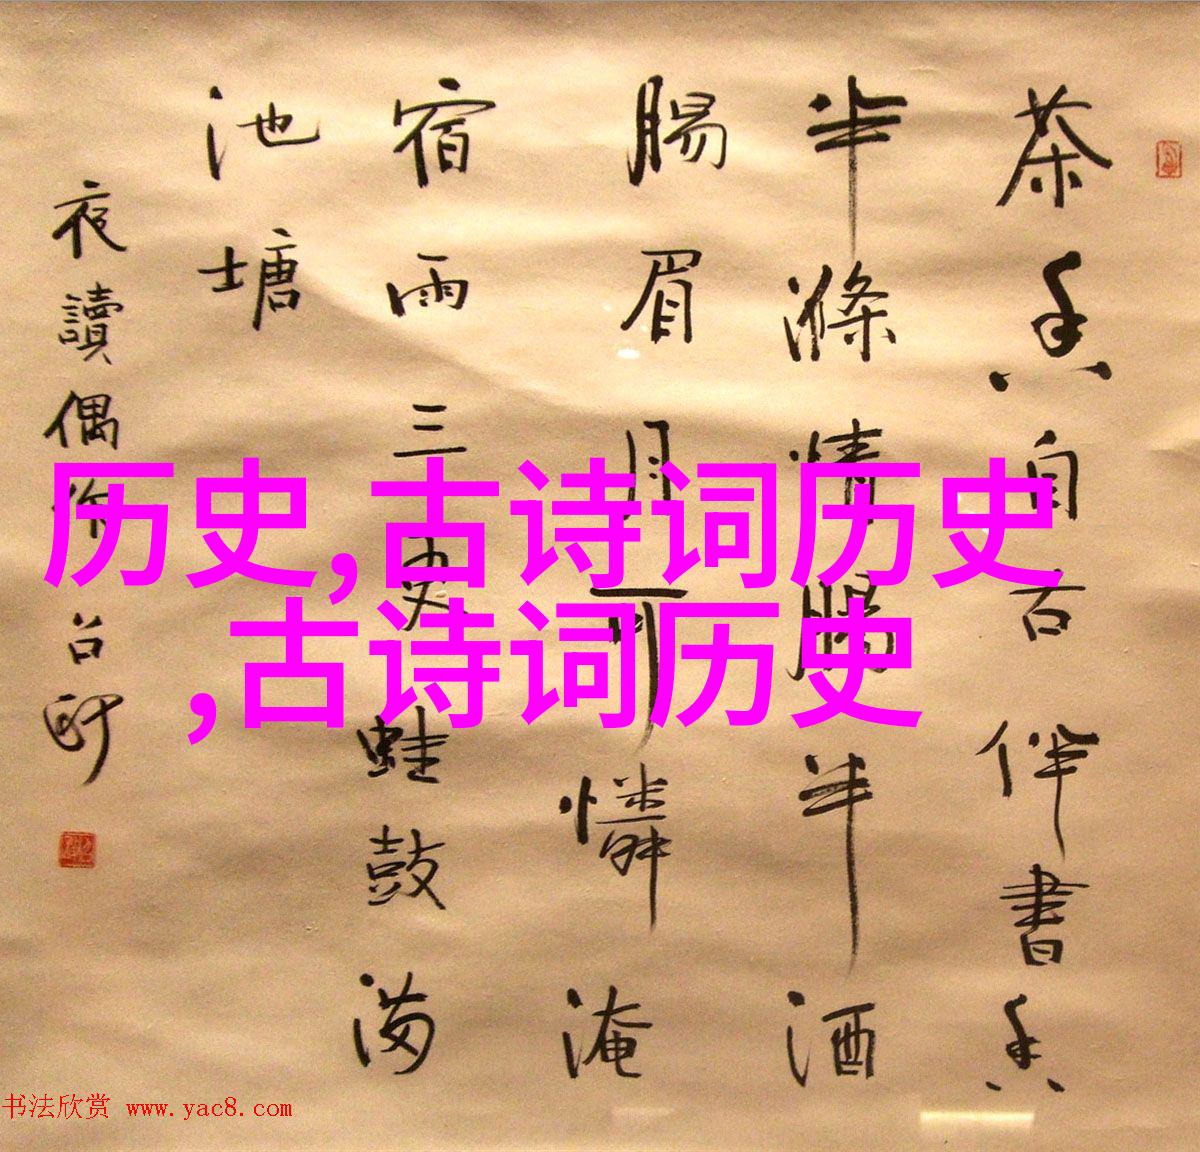 茶香自古伴書香
半滌情腸半酒
腸眉月可憐淹
宿雨三更蛙鼓满
池塘
夜讀偶作
历史,古诗词历史
,古诗词历史
书法欣赏 www.yac8.com